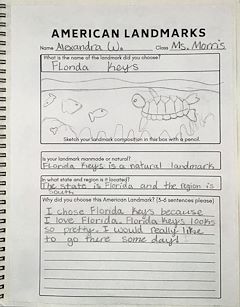 AMERICAN LANDMARKS
Name Alexandra W. Class Ms. Morris
What is the name of the landmark did you choose?
Florida Keys
Sketch your landmark composition in this box with a pencil.
Is your landmark manmade or natural?
Florida Keys is a natural landmark
In what state and region is it located?
The state is Florida and the region is
South
Why did you choose this American Landmark? (3-6 sentences please)
I chose Florida Keys because
I love Florida. Florida Keys looks
so pretty. I would really like
to go there some day!